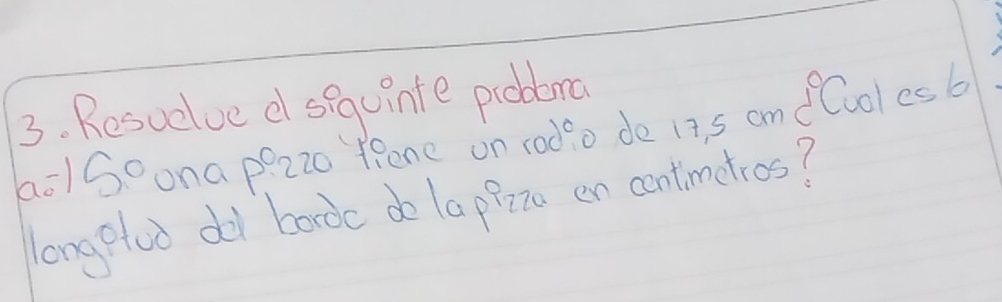 3. Resuelve el siguinte problema
a.-) Si una pizza tiene un radio de 17,5 cm ¿Cual es la
longitud del borde de la pizza en centimetros?